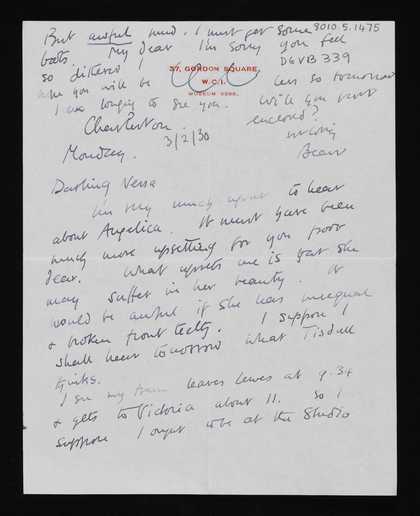 But awful mud. I must get some
boots. My dear I'm sorry you feel
so distrted!
8010.5.1475
DGVB 339
37, GORDON SQUARE,
W.C.1.
MUSEUM 0298.
you will be less so tomorrow
I am longing to see you. Will you
enclosed?
Charleston. 3/2/30
Monday.
Bear
Darling Nessa
I'm very much upset to hear
about Angelica. It must have been
much more upsetting for you poor
dear. What upsets me is that she
may suffer in her beauty. It
would be awful if she has unequal
& broken front teeth. I suppose I
shall hear tomorrow what Tisdall
thinks.
I see my train leaves Lewes at 9.34
& gets to Victoria about 11. So I
suppose I ought to be at the Studio